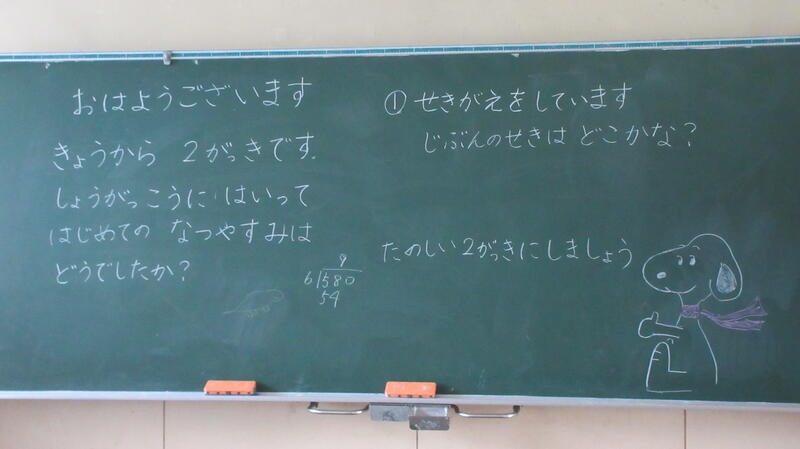 おはようございます
きょうから 2がっきです.
しょうがっこうに はいって
はじめての なつやすみは
どうでしたか?
9
6)580
54
① せきがえをしています
じぶんのせきは どこかな?
たのしい2がっきにしましょう